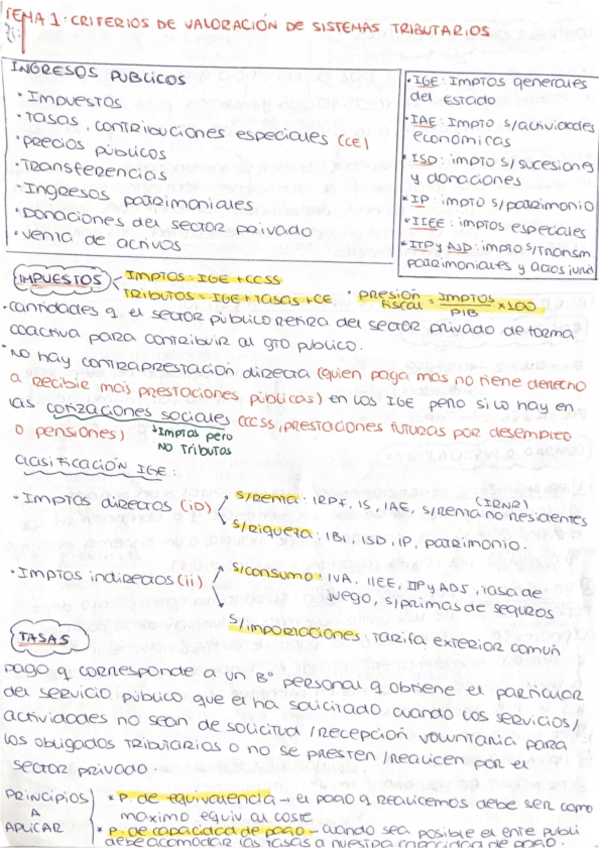 TEMA 1: CRITERIOS DE VALORACIÓN DE SISTEMAS TRIBUTARIOS
INGRESOS PUBLICOS
· Impuestos
· Tasas, contribuciones especiales (CE)
· Precios públicos
· Transferencias
· Ingresos patrimoniales
· Donaciones del sector privado
· Venta de activos
· IGE: Imptos generales
del estado
· IAE: Impto s/actividades
económicas
· ISD: impto s/sucesiones
y donaciones
· IP: impto s/patrimonio
· IIEE: imptos especiales
· ITP y AJD: impto s/transm
patrimoniales y actos jurid
IMPUESTOS
Imptos = IGE + CCSS
Tributos = IGE + Tasas + CE
· Presión fiscal = Imptos / PIB × 100
· cantidades q el sector público retira del sector privado de forma
coactiva para contribuir al gto público.
· No hay contraprestación directa (quien paga mas no tiene derecho
a recibir más prestaciones públicas) en los IGE, pero si lo hay en
las cotizaciones sociales (CCSS, prestaciones futuras por desempleo
o pensiones)
Imptos pero
NO Tributos
Clasificación IGE:
· Imptos directos (iD)
s/Renta: IRPF, IS, IAE, s/Renta no residentes
(IRNR)
s/Riqueza: IBI, ISD, IP, patrimonio.
· Imptos indirectos (ii)
s/consumo: IVA, IIEE, ITP y ADJ, tasa de
juego, s/primas de seguros
s/importaciones: tarifa exterior común
TASAS
pago q corresponde a un Bº personal q obtiene el particular
del servicio público que el ha solicitado cuando los servicios/
actividades no sean de solicitud/recepción voluntaria para
los obligados tributarios o no se presten/realicen por el
sector privado.
PRINCIPIOS
A
APLICAR
* P. de equivalencia → el pago q realicemos debe ser como
maximo equiv al coste
* P. de capacidad de pago → cuando sea posible el ente publi
debe acomodar las tasas a nuestra capacidad de pago.